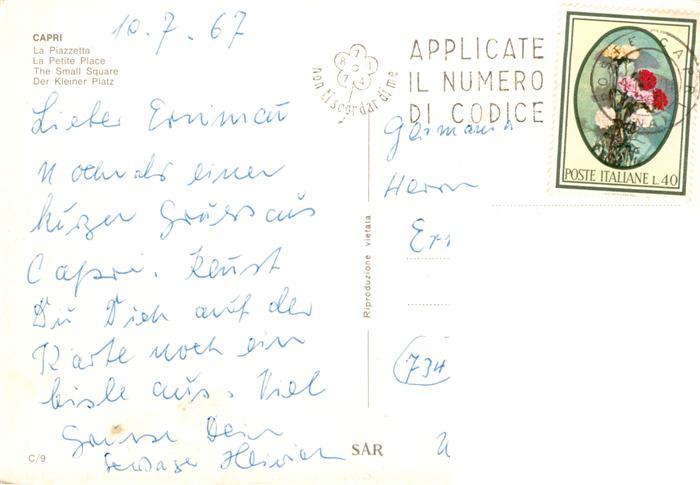 10.7.67
CAPRI
La Piazzetta
La Petite Place
The Small Square
Der Kleiner Platz
Lieber
Nochmals einen
kurzen Gruss aus
Capri. Kenst
Du Dich auf der
Karte noch ein
bisle aus. Viel
Grüsse Dein
Heinrich
C/9
SAR
Riproduzione vietata
non ti scordar di me
8 0 1 7 4 1
APPLICATE
IL NUMERO
DI CODICE
POSTE ITALIANE L.40
Germania
Herrn
Er
(734